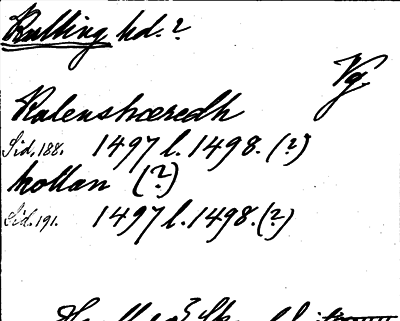 Kulling hd. ?
Vg.
Kolenshæredh
Sid. 188. 1497 l. 1498. (?)
kollan (?)
Sid. 191. 1497 l. 1498. (?)